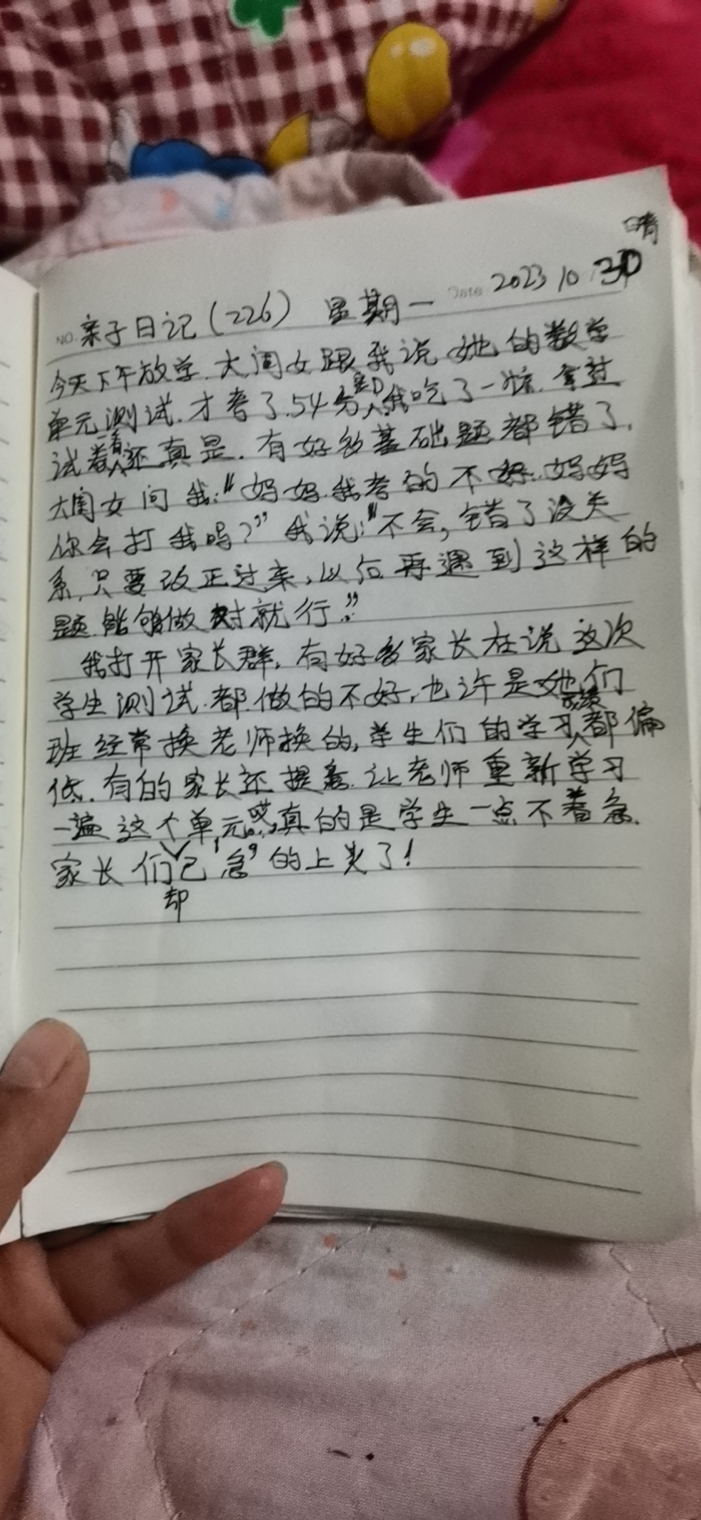 晴
NO. 亲子日记(226) 星期一 Date 2023 10 30
今天下午放学.大闺女跟我说她的数学
单元测试.才考了.54分,把我吃了一惊.拿过
试卷一看还真是.有好多基础题都错了.
大闺女问我:“妈妈.我考的不好.妈妈
你会打我吗?”我说:“不会,错了没关
系,只要改正过来,以后再遇到这样的
题.能够做对就行。”
我打开家长群,有好多家长在说这次
学生测试.都做的不好,也许是她们
班经常换老师换的,学生们的学习成绩都偏
低.有的家长还提意.让老师重新学习
一遍这个单元。哎,真的是学生一点不着急.
家长们却已‘急’的上火了!